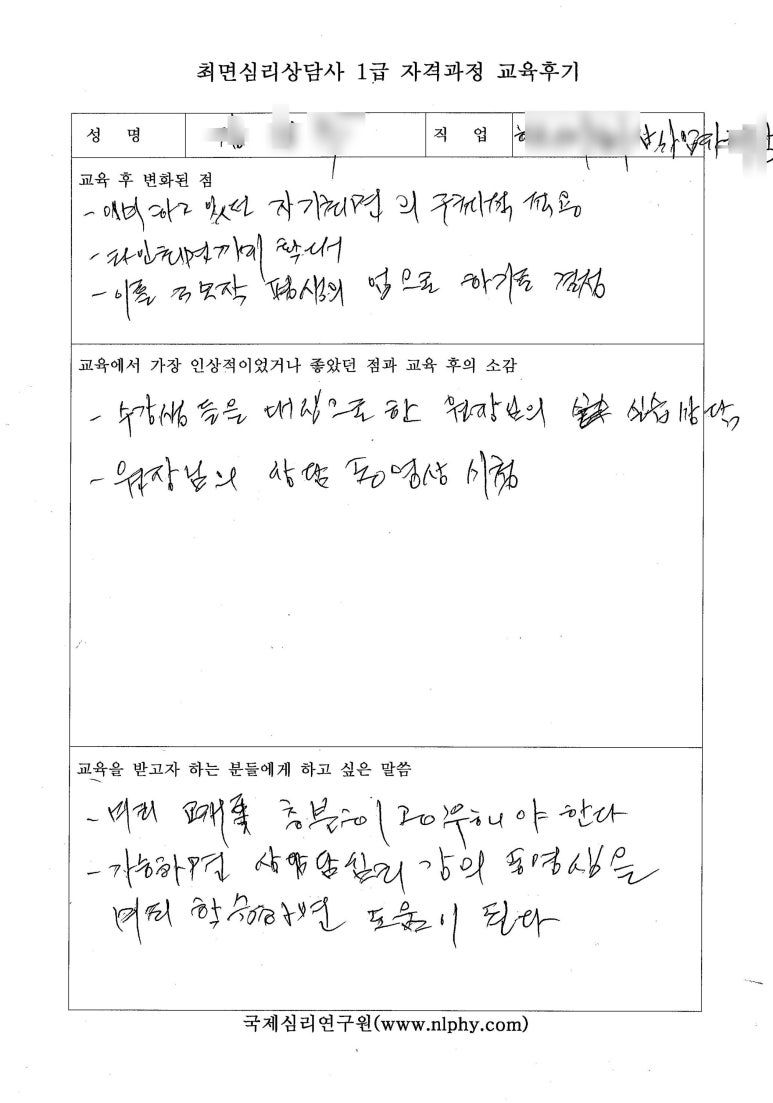 최면심리상담사 1급 자격과정 교육후기
성 명
직 업
교육 후 변화된 점
- 하고 있던 자기최면의 구체적 적용
- 타인최면까지 확대
- 이를 평생의 업으로 하기로 결정
교육에서 가장 인상적이었거나 좋았던 점과 교육 후의 소감
- 수강생들을 대상으로 한 원장님의 실습
- 원장님의 상담 동영상 시청
교육을 받고자 하는 분들에게 하고 싶은 말씀
- 미리 교재 충분히 공부해야 한다
- 가능하면 상담심리 강의 동영상을
미리 학습하면 도움이 된다
국제심리연구원(www.nlphy.com)